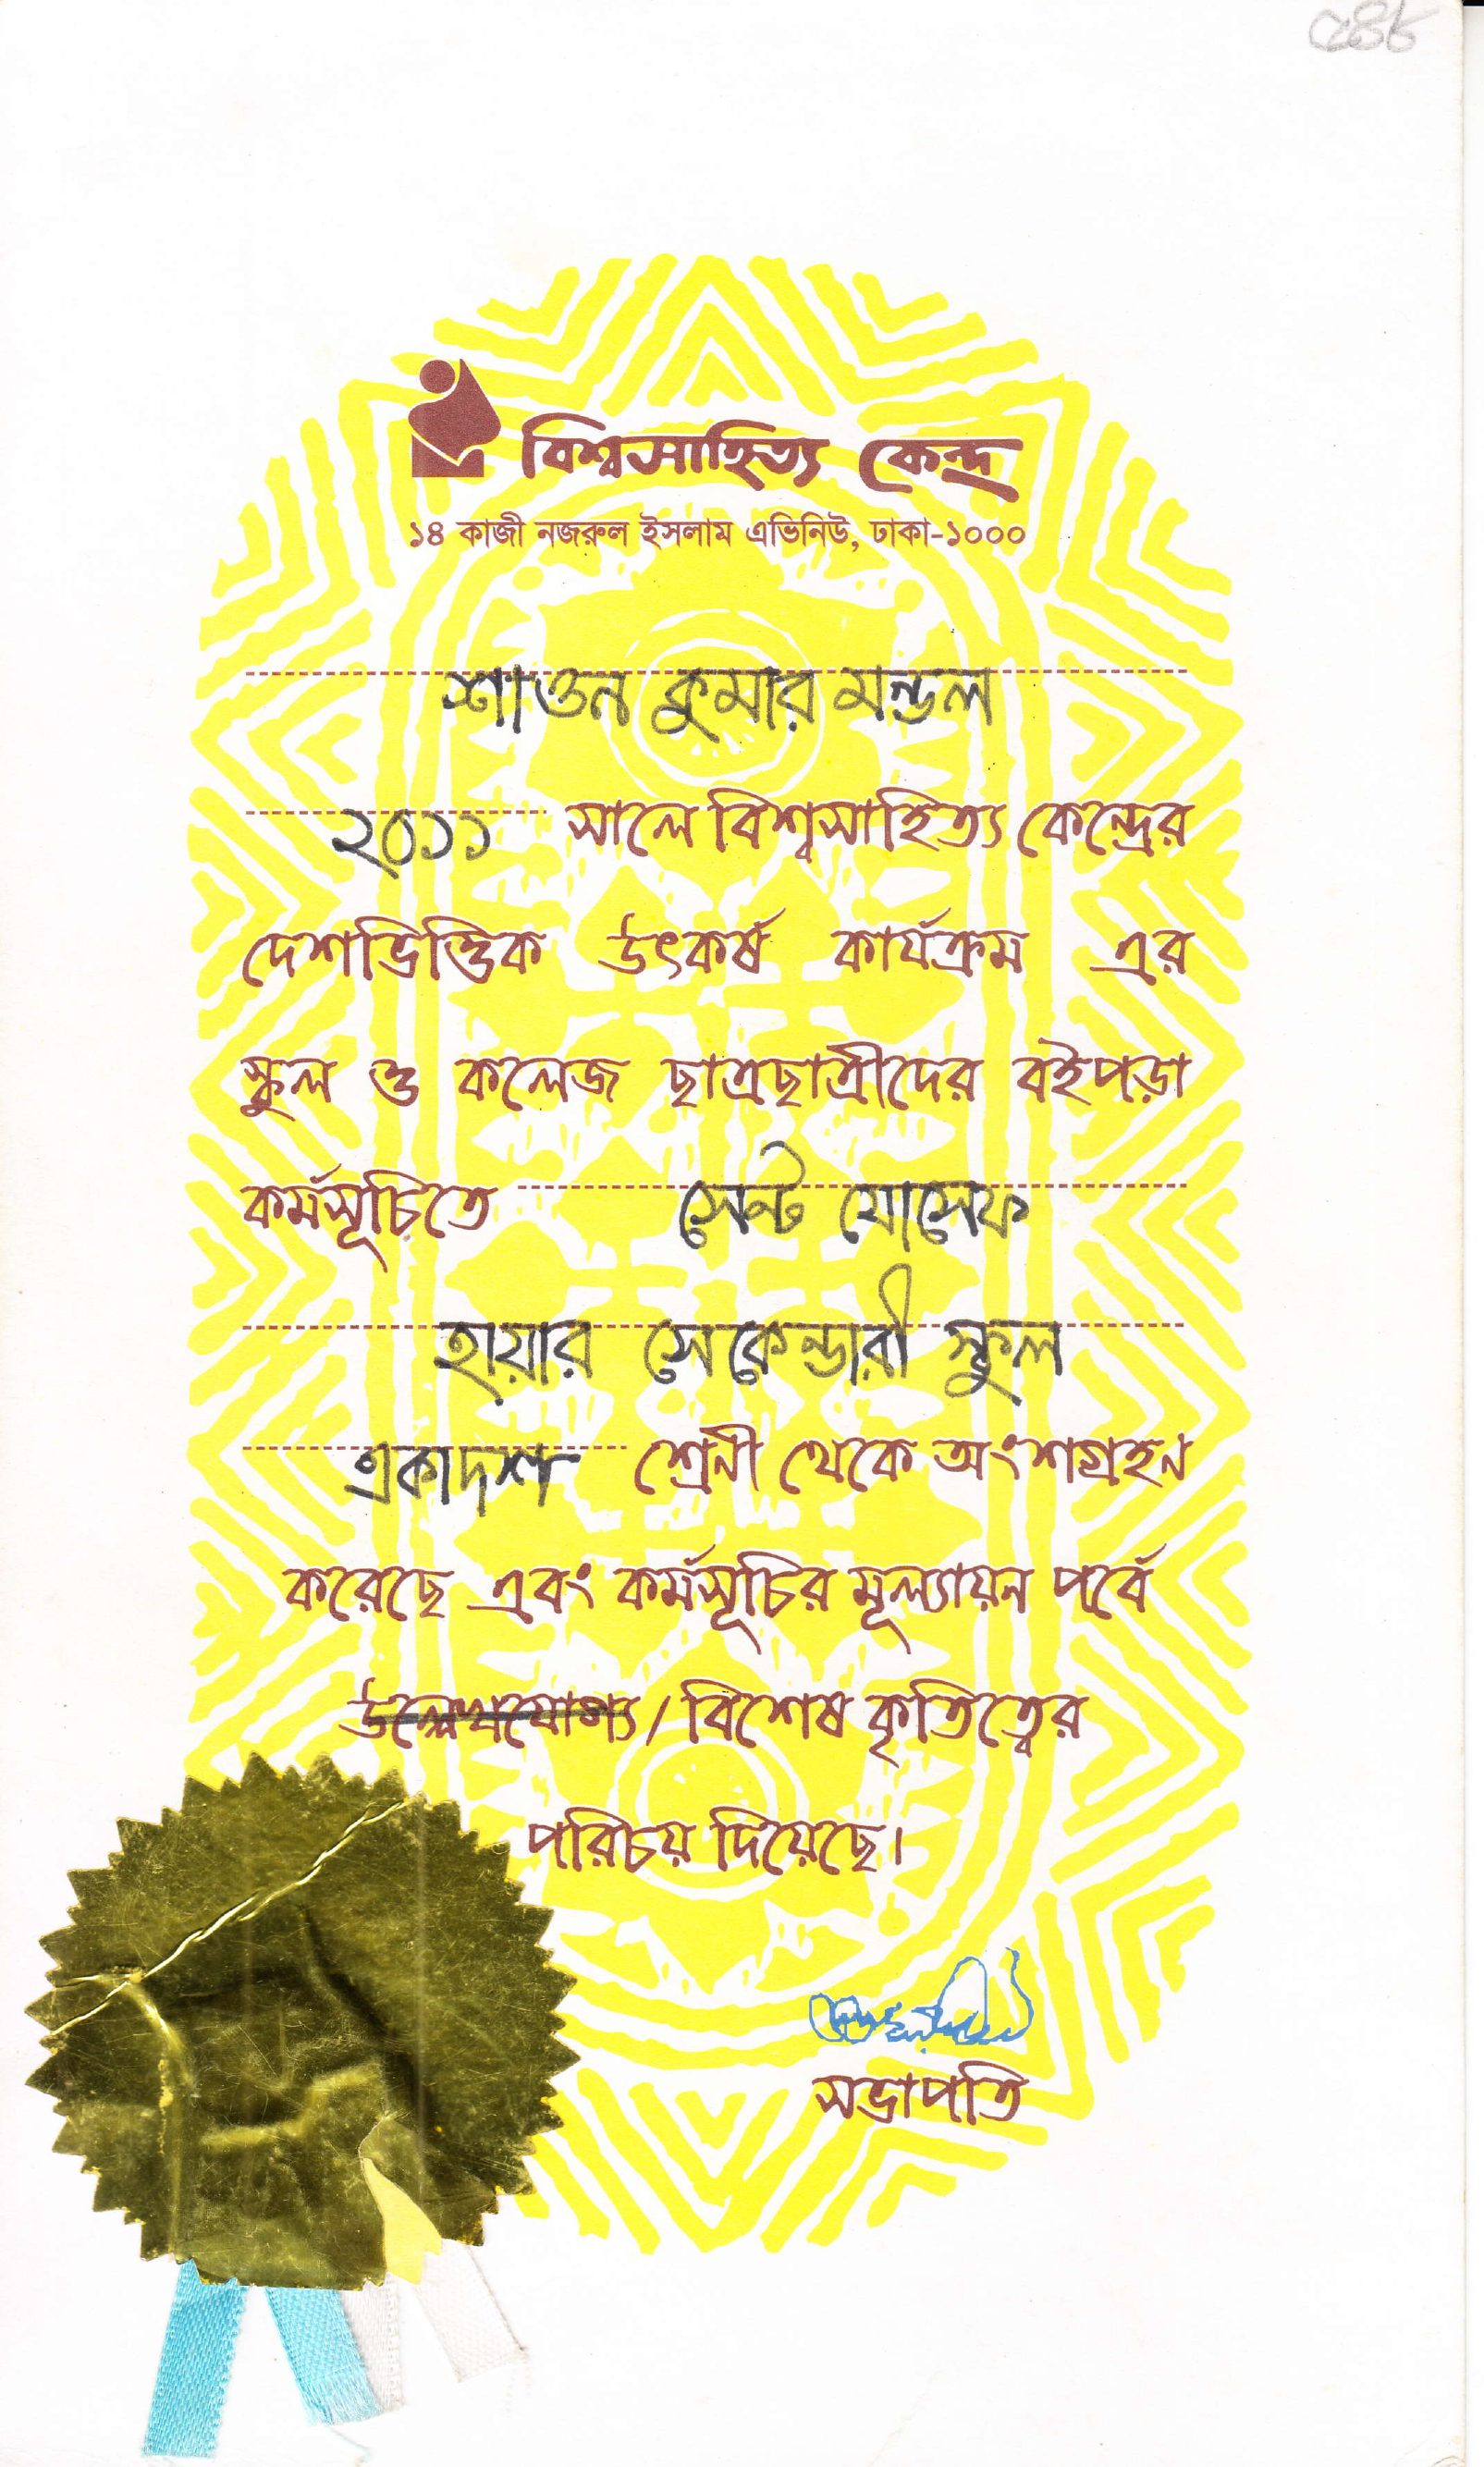 ৫৪৮
বিশ্বসাহিত্য কেন্দ্র
১৪ কাজী নজরুল ইসলাম এভিনিউ, ঢাকা-১০০০
শাওন কুমার মন্ডল
২০১১ সালে বিশ্বসাহিত্য কেন্দ্রের
দেশভিত্তিক উৎকর্ষ কার্যক্রম এর
স্কুল ও কলেজ ছাত্রছাত্রীদের বইপড়া
কর্মসূচিতে সেন্ট যোসেফ
হায়ার সেকেন্ডারী স্কুল
একাদশ শ্রেনী থেকে অংশগ্রহণ
করেছে এবং কর্মসূচির মূল্যায়ন পর্বে
উল্লেখযোগ্য / বিশেষ কৃতিত্বের
পরিচয় দিয়েছে।
সভাপতি